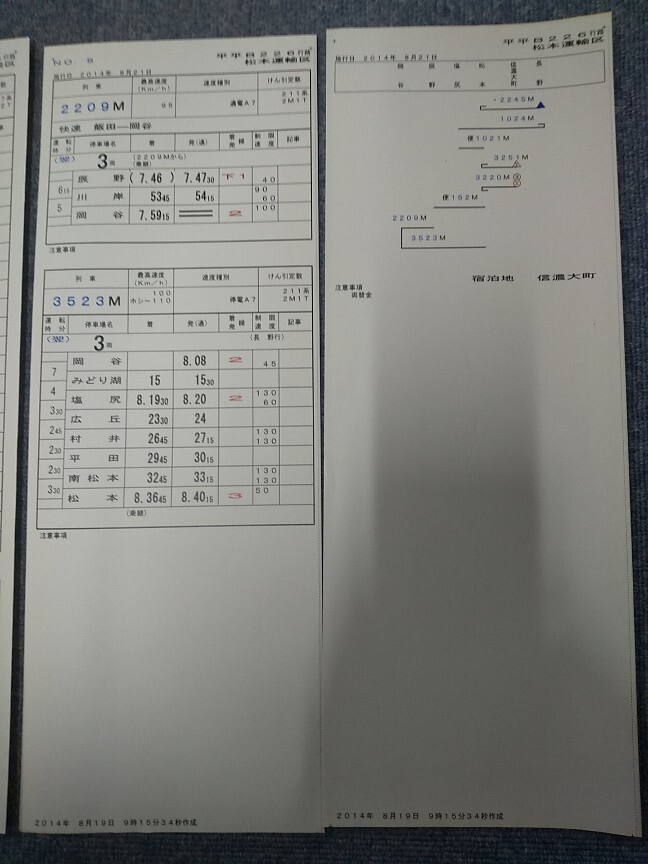 行路
NO. 8
平平B226行路
松本運輸区
施行日 2014年 8月21日
列車 最高速度 (Km/h) 速度種別 けん引定数
2209M 95 通電A7 211系 2M1T
快速 飯田―岡谷
運転時分 停車場名 着 発(通) 着発線 制限速度 記事
3両 (2209Mから) (乗継)
辰野 (7.46 ) 7.4730 下1 40
615 川岸 5345 5415 90 60
5 岡谷 7.5915 2 100
注意事項
列車 最高速度 (Km/h) 速度種別 けん引定数
3523M 100 ホシ-110 停電A7 211系 2M1T
運転時分 停車場名 着 発(通) 着発線 制限速度 記事
3両 (長野行)
岡谷 8.08 2 45
7 みどり湖 15 1530
4 塩尻 8.1930 8.20 2 130 60
330 広丘 2330 24
245 村井 2645 2715 130 130
230 平田 2945 3015
230 南松本 3245 3315 130 130
330 松本 8.3645 8.4015 3 50
(乗継)
注意事項
2014年 8月19日 9時15分34秒作成
平平B226行路
松本運輸区
施行日 2014年 8月21日
岡谷 辰野 塩尻 松本 信濃大町 長野
2245M
1024M
便1021M
3251M
3220M
便152M
2209M
3523M
宿泊地 信濃大町
注意事項
両替金
2014年 8月19日 9時15分34秒作成